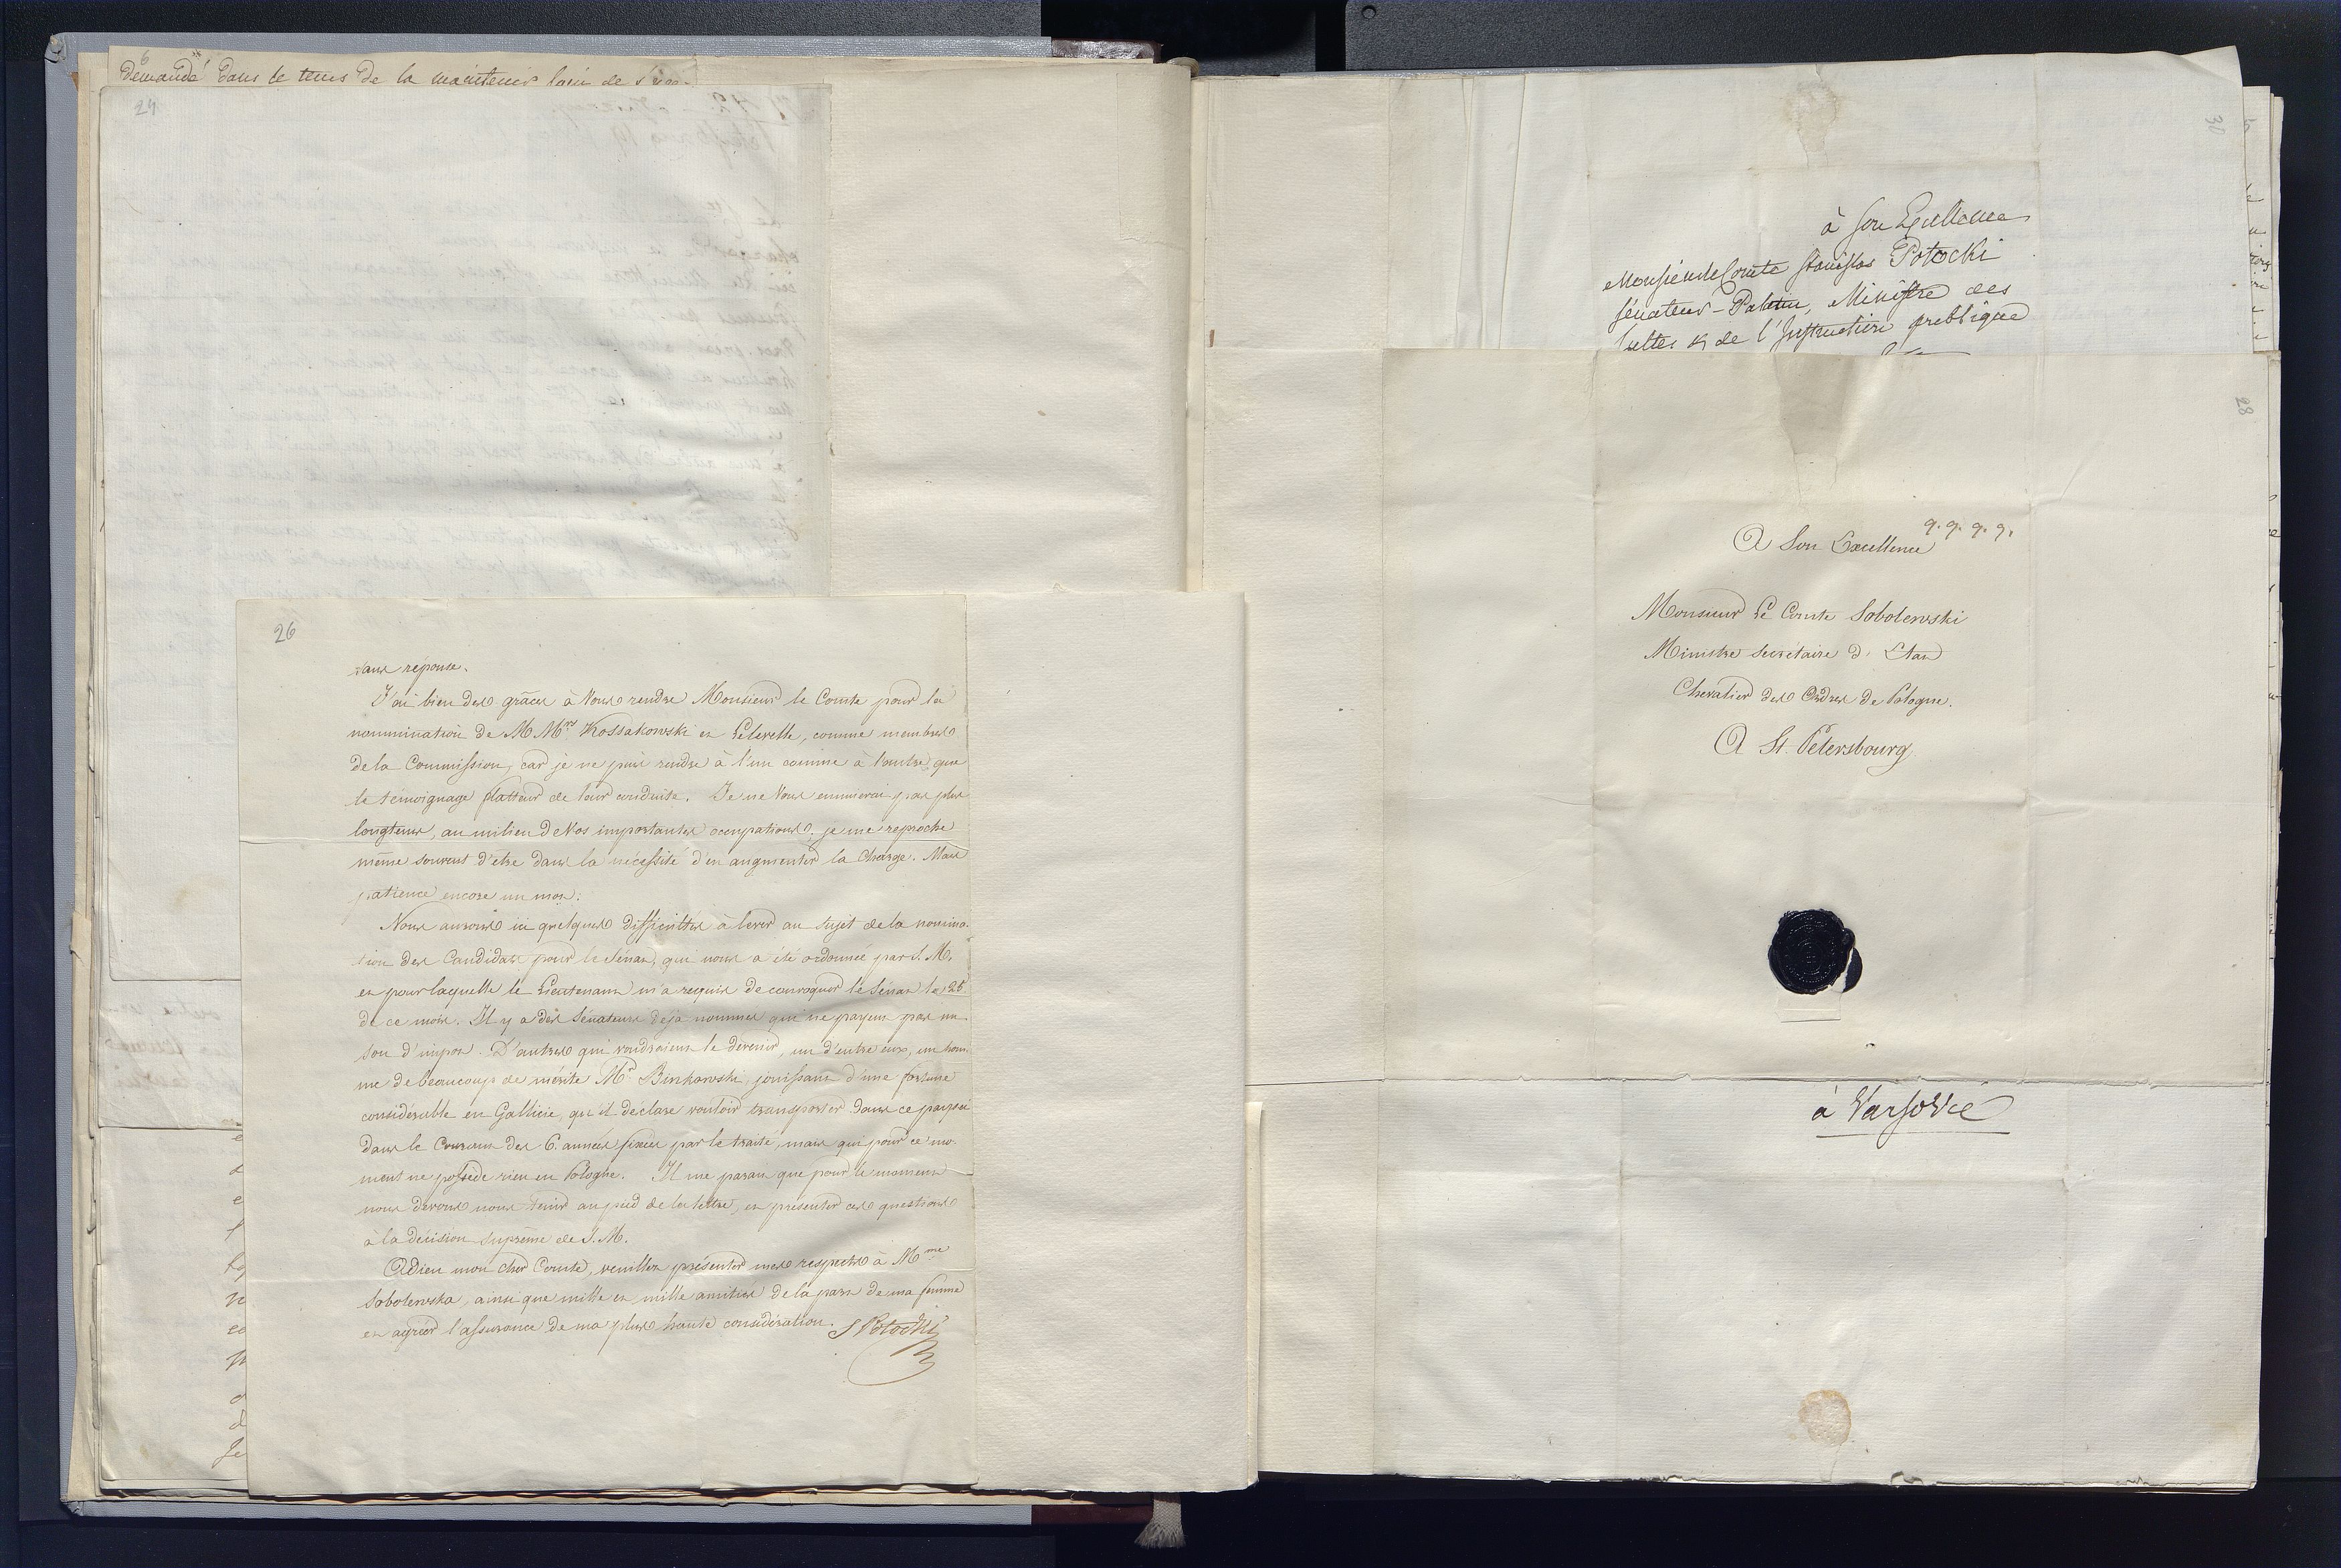 6
demandé dans le tems de la maintenir
24
26
sans reponse.
J'ai bien des grâces à Vous rendre Monsieur le Comte pour la
nommination de M M.rs Kossakowski et Lelevelle, comme membres
de la Commission, car je ne puis rendre à l'un comme à l'autre, que
le témoignage flatteur de leur conduite. Je ne Vous ennuierai pas plus
longtems, au milieu de Vos importantes occupations, je me reproche
même souvent d'être dans la nécessité d'en augmenter la Charge. Mais
patience encore un mot.
Nous aurons ici quelques difficultés à lever au sujet de la nomina-
tion des Candidats pour le Sénat, qui nous a été ordonnée par S. M.
et pour laquelle le Lieutenant m'a requis de convoquer le Sénat le 25
de ce mois. Il y a des Sénateurs déjà nommés qui ne payent pas un
sou d'impot. D'autres qui voudraient le devenir, un d'entre eux, un hom-
me de beaucoup de mérite Mr Binkowski, jouissant d'une fortune
considérable en Gallicie, qu'il déclare vouloir transporter dans ce pays ci
dans le Courant des 6. années fixées par le traité, mais qui pour ce mo-
ment ne possède rien en Pologne. Il me parait que pour le moment
nous devons nous tenir au pied de la lettre, et présenter ces questions
à la décision suprême de S. M.
Adieu mon cher Comte, veuillez présenter mes respects à Mme
Sobolewska, ainsi que mille et mille amitiés de la part de ma femme
et agréer l'assurance de ma plus haute considération. S Potocki
30
à Son Excellence
Monsieur le Comte Stanislas Potocki
Sénateur-Palatin, Ministre des
Cultes & de l'Instruction publique
28
q. q. q. q.
A Son Excellence
Monsieur Le Comte Sobolewski
Ministre Secrétaire d'Etat
Chevalier des Ordres de Pologne.
A St. Petersbourg
à Varsovie